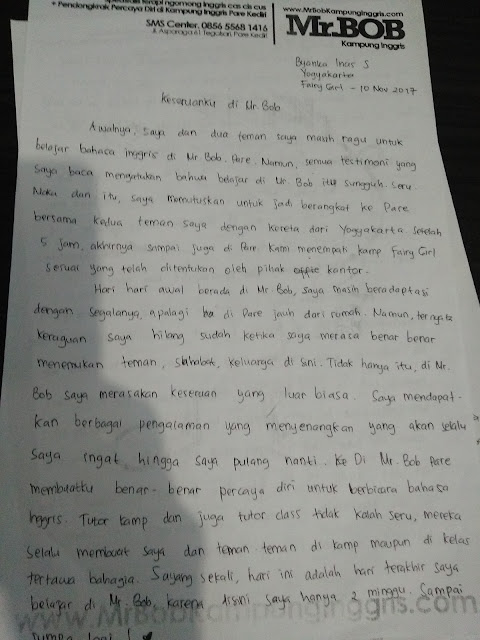 Spesialis terapi ngomong Inggris cas cis cus
+ Pendongkrak Percaya Diri di Kampung Inggris Pare Kediri
SMS Center. 0856 5568 1416
Jl. Asparaga 61 Tegalsari, Pare Kediri
www.MrBobKampungInggris.com
Mr.BOB
Kampung Inggris
Byanka Inas S
Yogyakarta
Fairy Girl - 10 Nov 2017
Keseruanku di Mr. Bob
Awalnya, saya dan dua teman saya masih ragu untuk
belajar bahasa inggris di Mr Bob. Pare. Namun, semua testimoni yang
saya baca mengatakan bahwa belajar di Mr. Bob itu sungguh seru.
Maka dari itu, saya memutuskan untuk jadi berangkat ke Pare
bersama kedua teman saya dengan kereta dari Yogyakarta. Setelah
5 jam, akhirnya sampai juga di Pare. Kami menempati kamp Fairy Girl
sesuai yang telah ditentukan oleh pihak kantor.
Hari hari awal berada di Mr. Bob, saya masih beradaptasi
dengan segalanya, apalagi di Pare jauh dari rumah. Namun, ternyata
keraguan saya hilang sudah ketika saya merasa benar benar
menemukan teman, sahabat, keluarga di sini. Tidak hanya itu, di Mr.
Bob saya merasakan keseruan yang luar biasa. Saya mendapat-
kan berbagai pengalaman yang menyenangkan yang akan selalu
saya ingat hingga saya pulang nanti. Ke Di Mr. Bob Pare
membuatku benar-benar percaya diri untuk berbicara bahasa
Inggris. Tutor kamp dan juga tutor class tidak kalah seru, mereka
selalu membuat saya dan teman-teman di kamp maupun di kelas
tertawa bahagia. Sayang sekali, hari ini adalah hari terakhir saya
belajar di Mr. Bob, karena disini saya hanya 2 minggu. Sampai
jumpa lagi!
www.MrBobKampungInggris.com